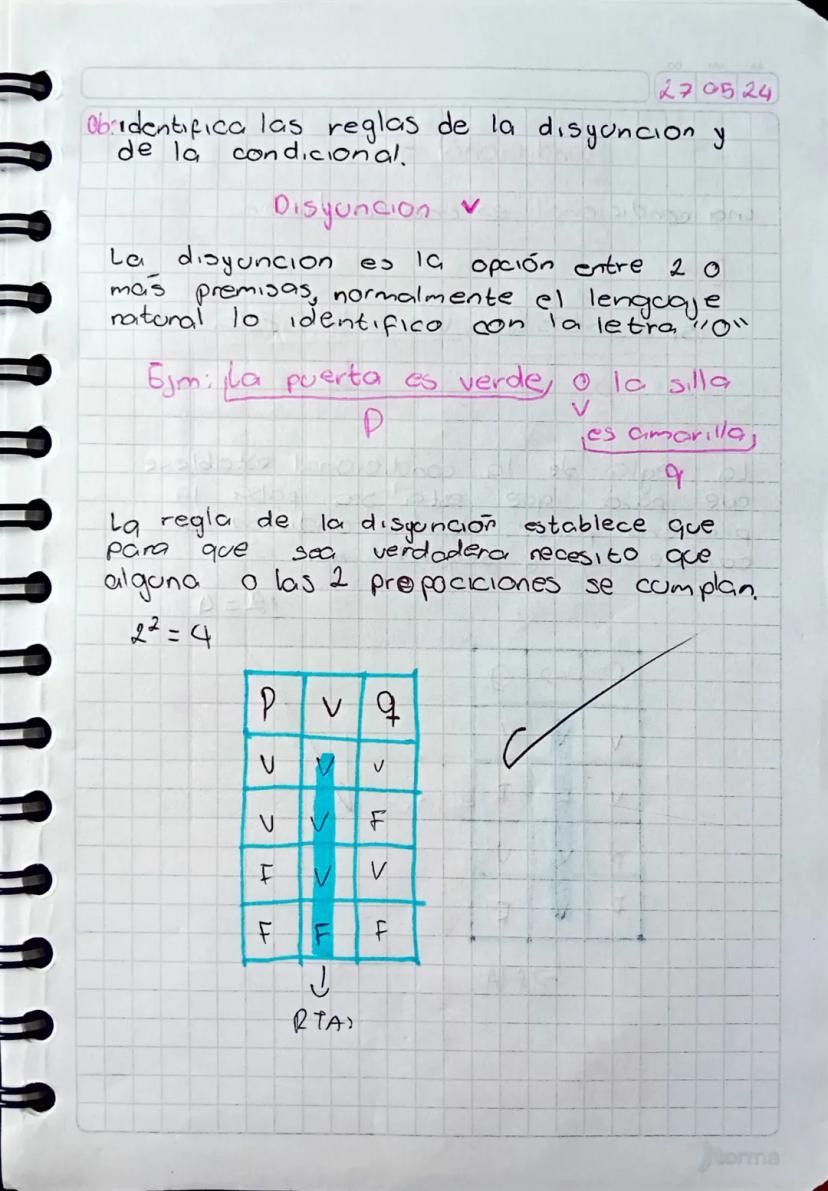 27 05 24
Ob: identifica las reglas de la disyuncion y
de la condicional.
Disyuncion v
La disyuncion es la opción entre 2 o
más premisas, normalmente el lenguaje
natural lo identifico con la letra "o"
Ejm: La puerta es verde, o la silla
p v
es amarilla,
q
La regla de la disyunción establece que
para que sea verdadera necesito que
alguna o las 2 prepociciones se cumplan.
2² = 4
P V q
V V V
V V F
F V V
F F F
↓
RTA)
norma